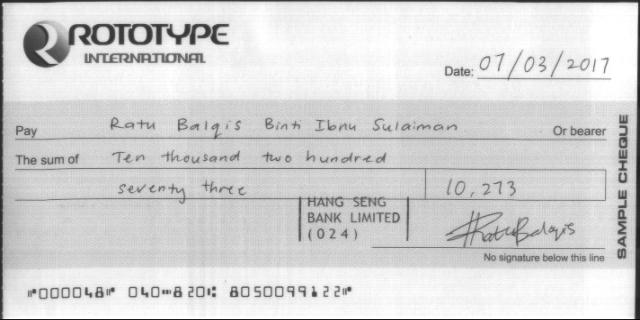 ROTOTYPE
INTERNATIONAL
Date: 07/03/2017
Pay Ratu Balqis Binti Ibnu Sulaiman Or bearer
The sum of Ten thousand two hundred
seventy three 10,273
HANG SENG
BANK LIMITED
(024)
RatuBalqis
No signature below this line
SAMPLE CHEQUE
⑈000048⑈ 040⑉820⑆ 8050099122⑈